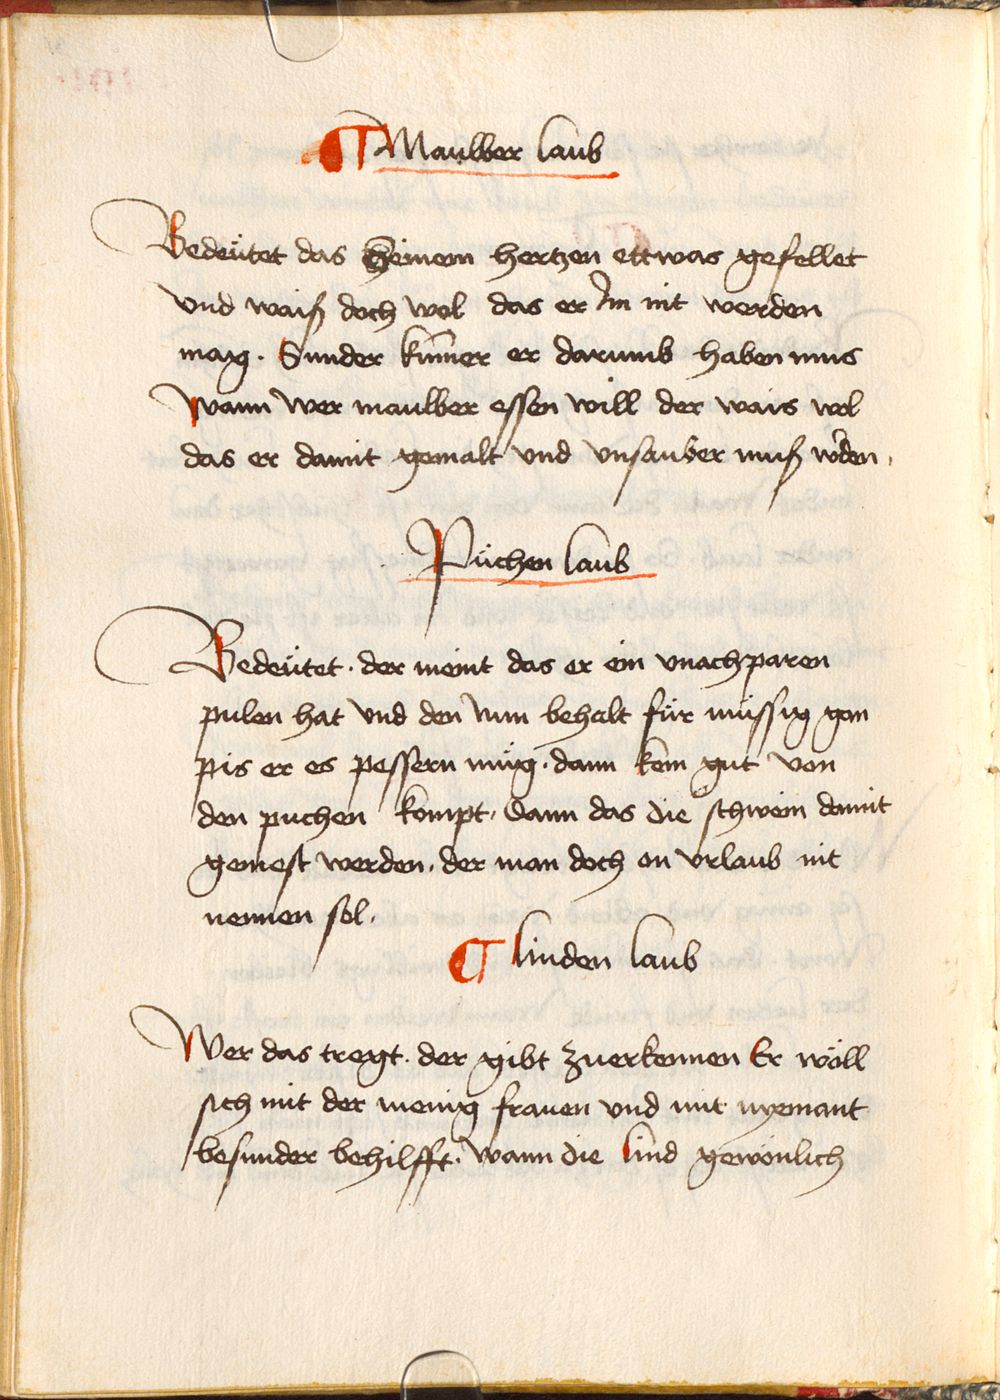 Maulber laub
Bedeütet das seinem hertzen ettwas gefellet
vnd waiß doch wol das er Im nit werden
mag. Sunder kumer er darumb haben mus
Wann wer maulber essen will der wais wol
das er damit gemalt vnd vnsauber muß werden,
Püchen laub
Bedeütet. der meint das er ein vnachparen
pulen hat vnd den Inn behalt für müssig gan
pis er es pessern müg. dann kein gut von
den puchen kompt, dann das die schwein damit
gemest werden. der man doch on vrlaub nit
nennen sol.
linden laub
Wer das tregt. der gibt zuerkennen Er wöll
sich mit der menig frauen vnd mit nyemant
besunder behilfft. Wann die lind gewönlich